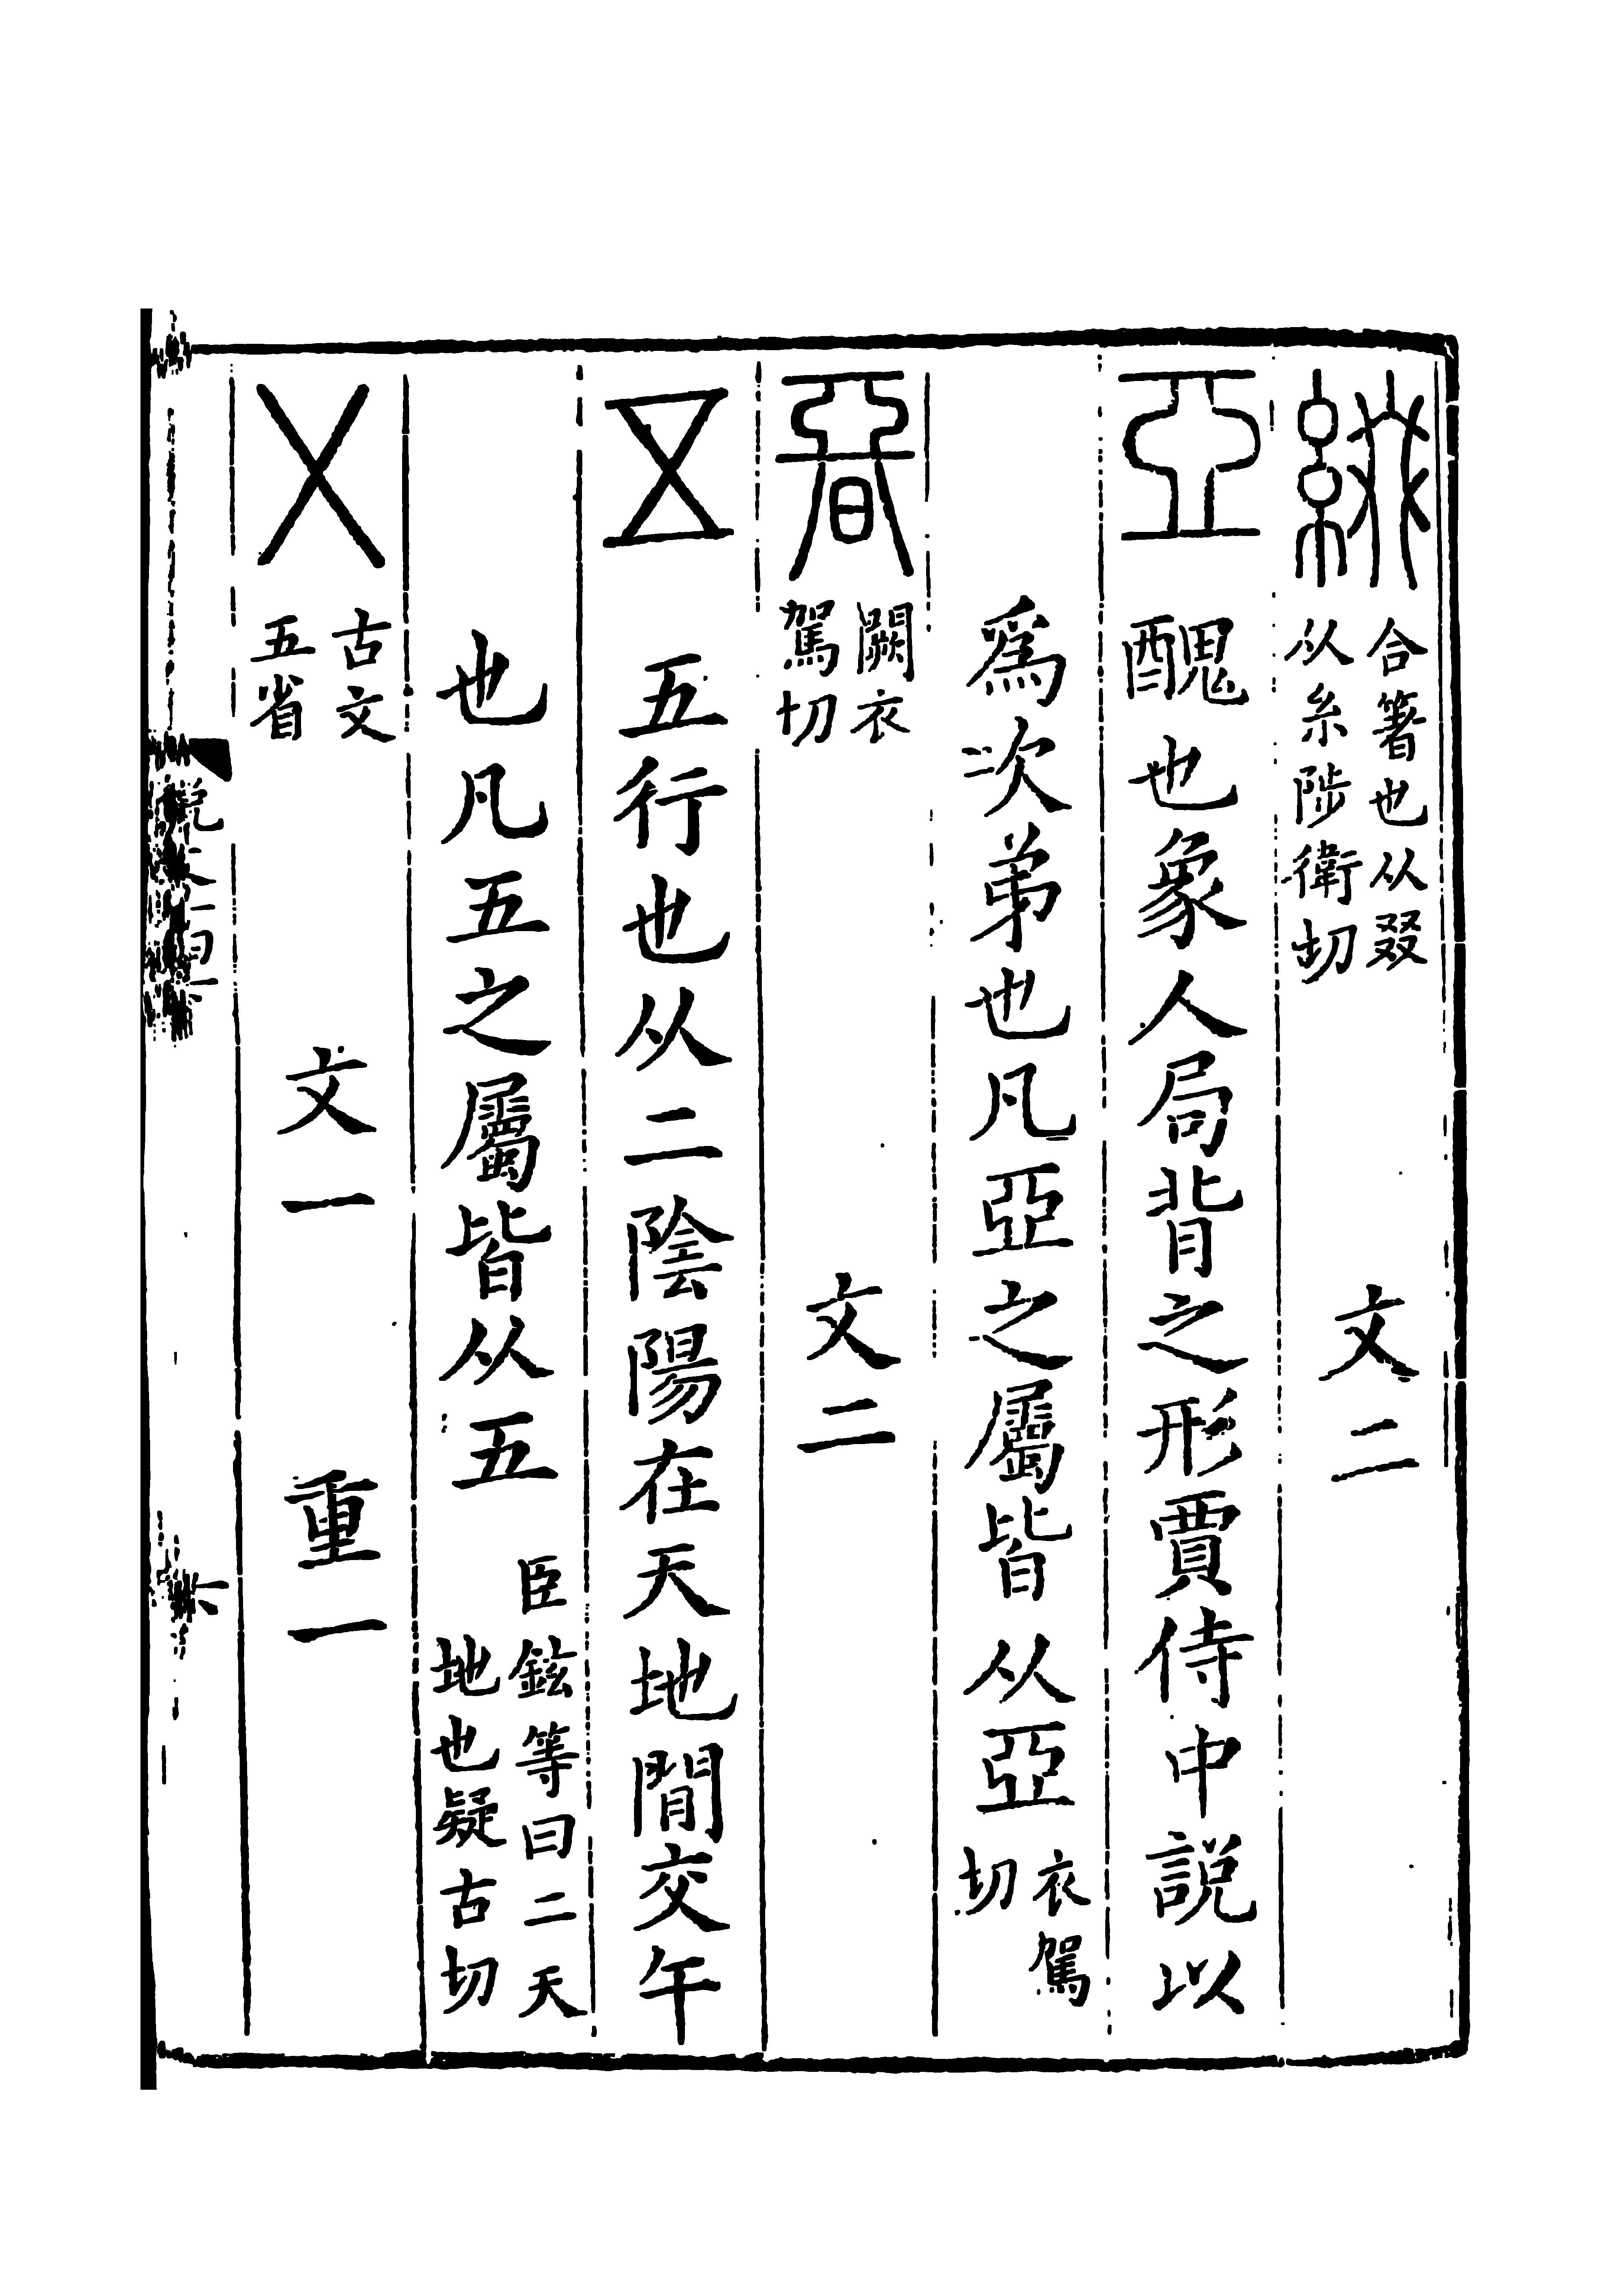 綴 合箸也从叕从糸陟衛切 文二
亞 醜也象人局背之形賈侍中說以
爲次弟也凡亞之屬皆从亞 衣駕切
𣉩 闕衣駕切 文二
五 五行也从二陰陽在天地閒交午
也凡五之屬皆从五 臣鉉等曰二天地也疑古切
㐅 古文五省 文一 重一